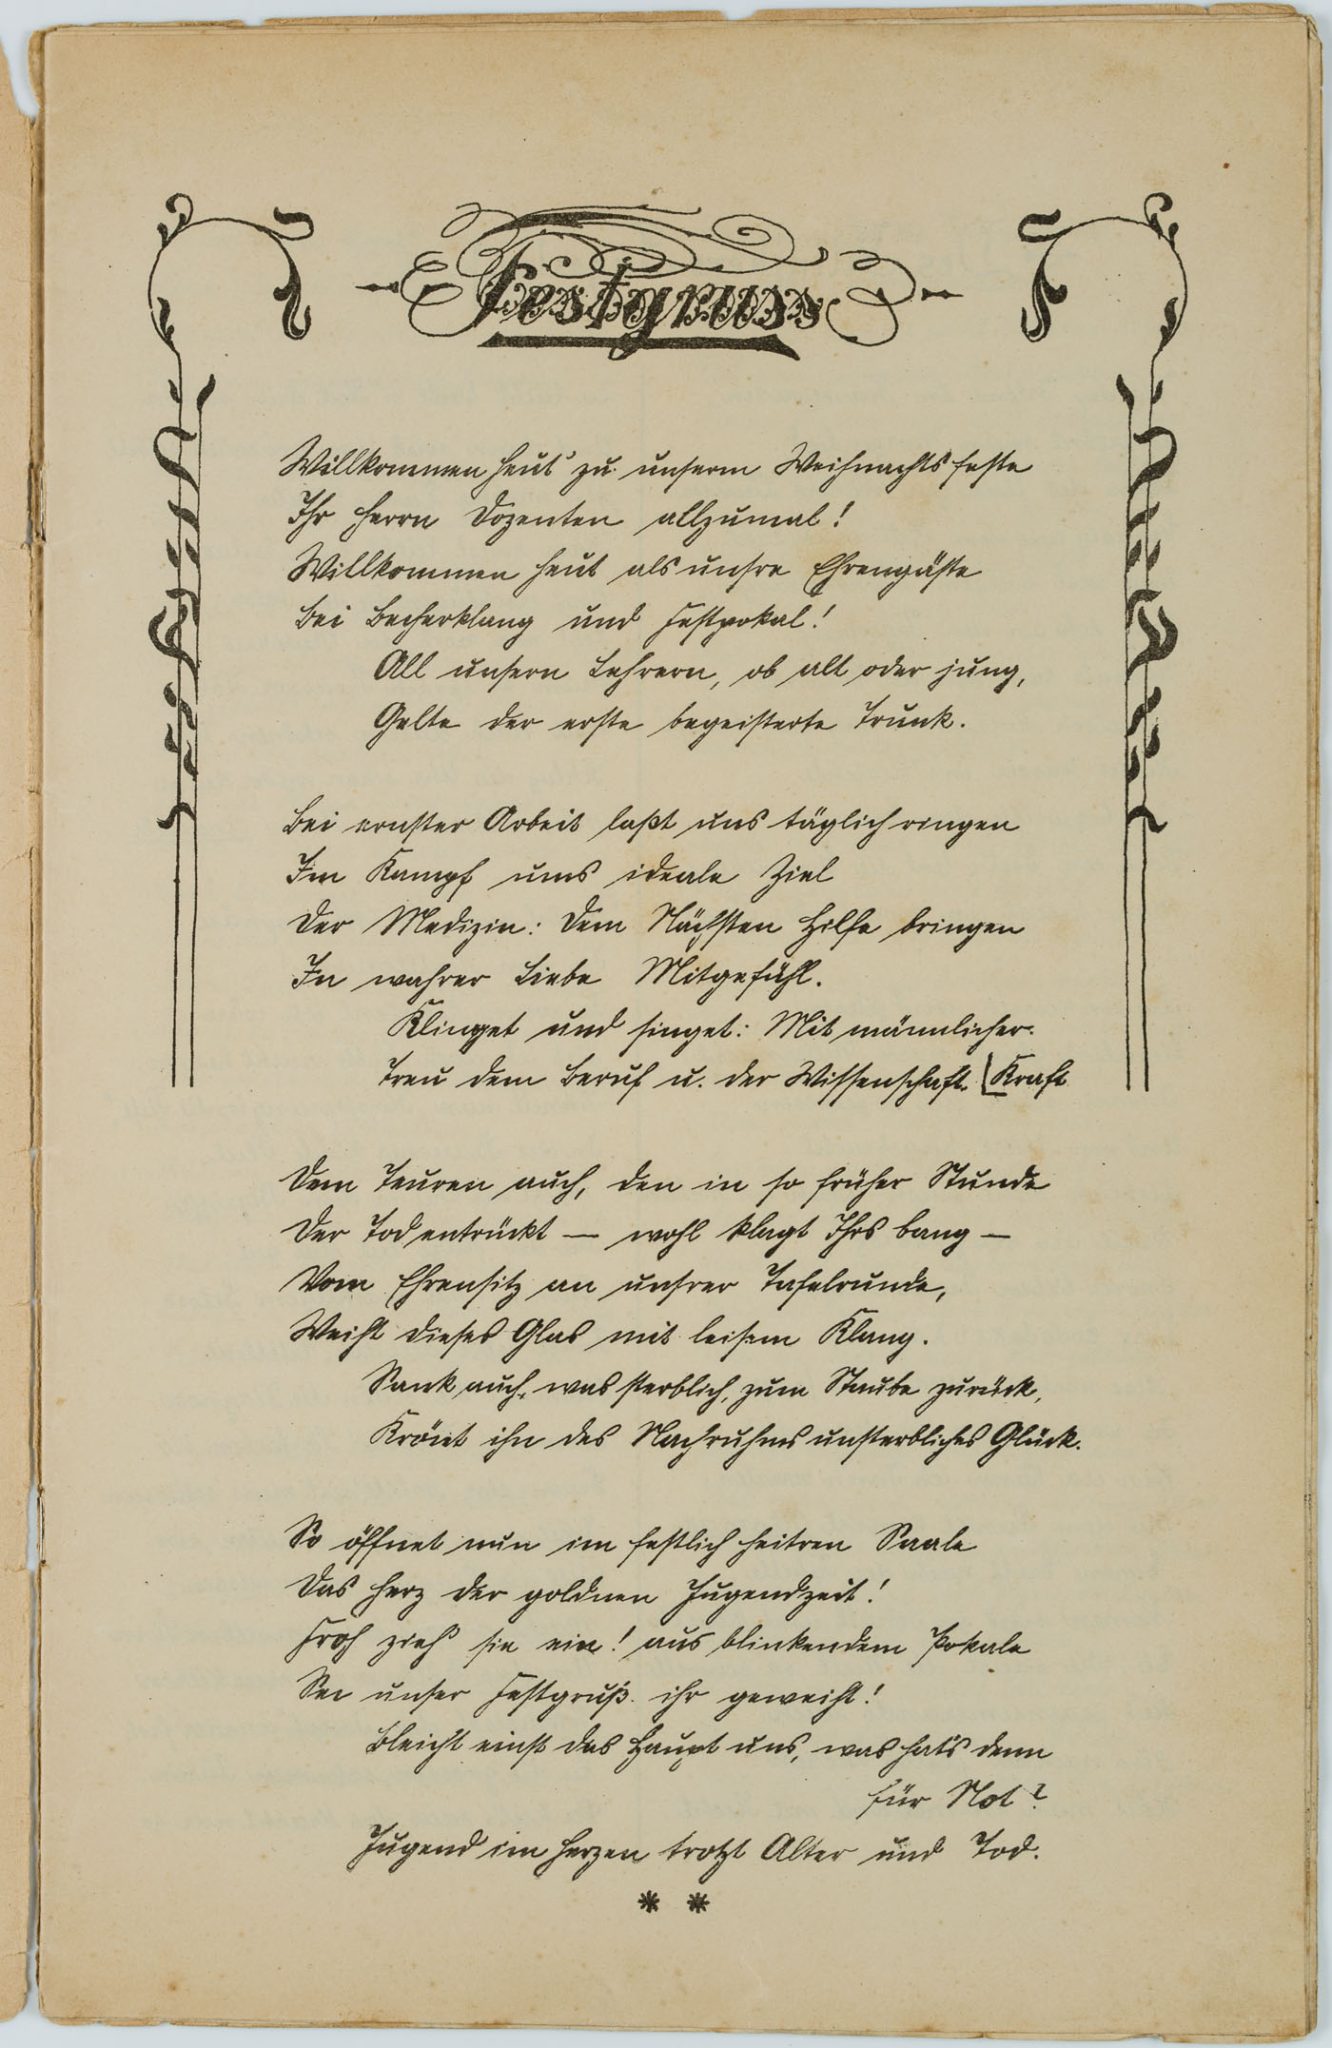 Festgruss
Willkommen heut' zu unserm Weihnachtsfeste
Ihr Herrn Dozenten allzumal!
Willkommen heut als unsre Ehrengäste
Bei Becherklang und Festpokal!
All unsern Lehrern, ob alt oder jung,
Gelte der erste begeisterte Trunk.
Bei ernster Arbeit laßt uns täglich ringen
Im Kampf ums ideale Ziel
Der Medizin: Dem Nächsten Hilfe bringen
In wahrer Liebe Mitgefühl.
Klinget und singet: Mit männlicher
Treu dem Beruf u. der Wissenschaft. Kraft
Dem Teuren auch, den in so früher Stunde
Der Tod entrückt — wohl klagt Ihrs bang —
Vom Ehrensitz an unsrer Tafelrunde,
Weiht dieses Glas mit leisem Klang.
Sank auch, was sterblich, zum Staube zurück,
Krönt ihn des Nachruhms unsterbliches Glück.
So öffnet nun im festlich heitren Saale
Das Herz der goldnen Jugendzeit!
Froh zieh' sie ein! aus blinkendem Pokale
Sei unser Festgruß ihr geweiht!
Bleicht einst das Haupt uns, was hat's denn
für Not?
Jugend im Herzen trotzt Alter und Tod.